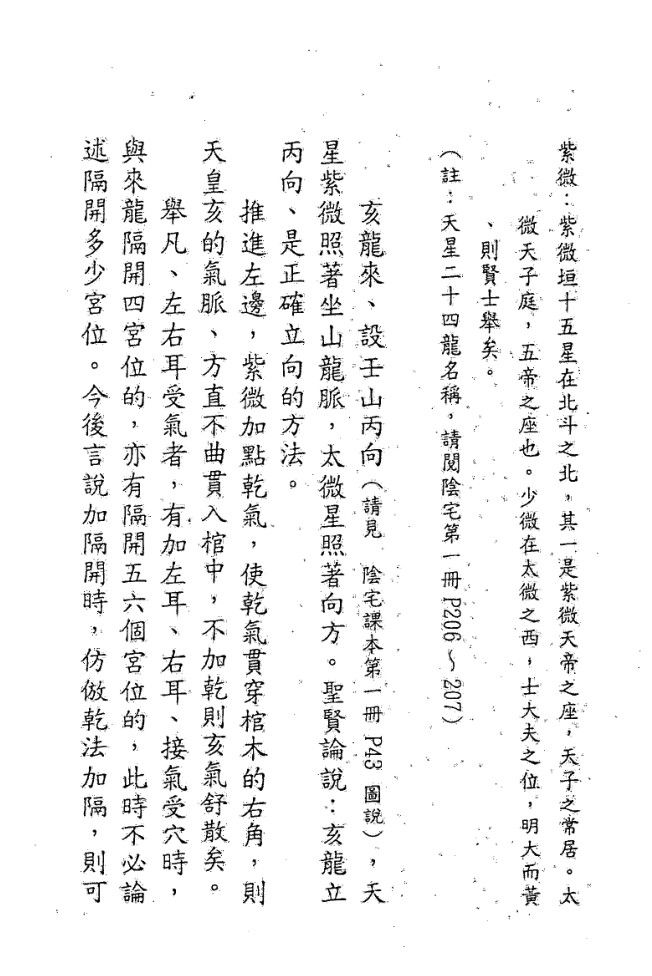 紫微：紫微垣十五星在北斗之北，其一是紫微天帝之座，天子之常居。太
微天子庭，五帝之座也。少微在太微之西，士大夫之位，明大而黃
、則賢士舉矣。
（註：天星二十四龍名稱，請閱陰宅第一冊P206～207）
亥龍來、設壬山丙向（請見　陰宅課本第一冊 P43 圖說），天
星紫微照著坐山龍脈，太微星照著向方。聖賢論說：亥龍立
丙向、是正確立向的方法。
推進左邊，紫微加點乾氣，使乾氣貫穿棺木的右角，則
天皇亥的氣脈、方直不曲貫入棺中，不加乾則亥氣舒散矣。
舉凡、左右耳受氣者，有加左耳、右耳、接氣受穴時，
與來龍隔開四宮位的，亦有隔開五六個宮位的，此時不必論
述隔開多少宮位。今後言說加隔開時，仿倣乾法加隔，則可